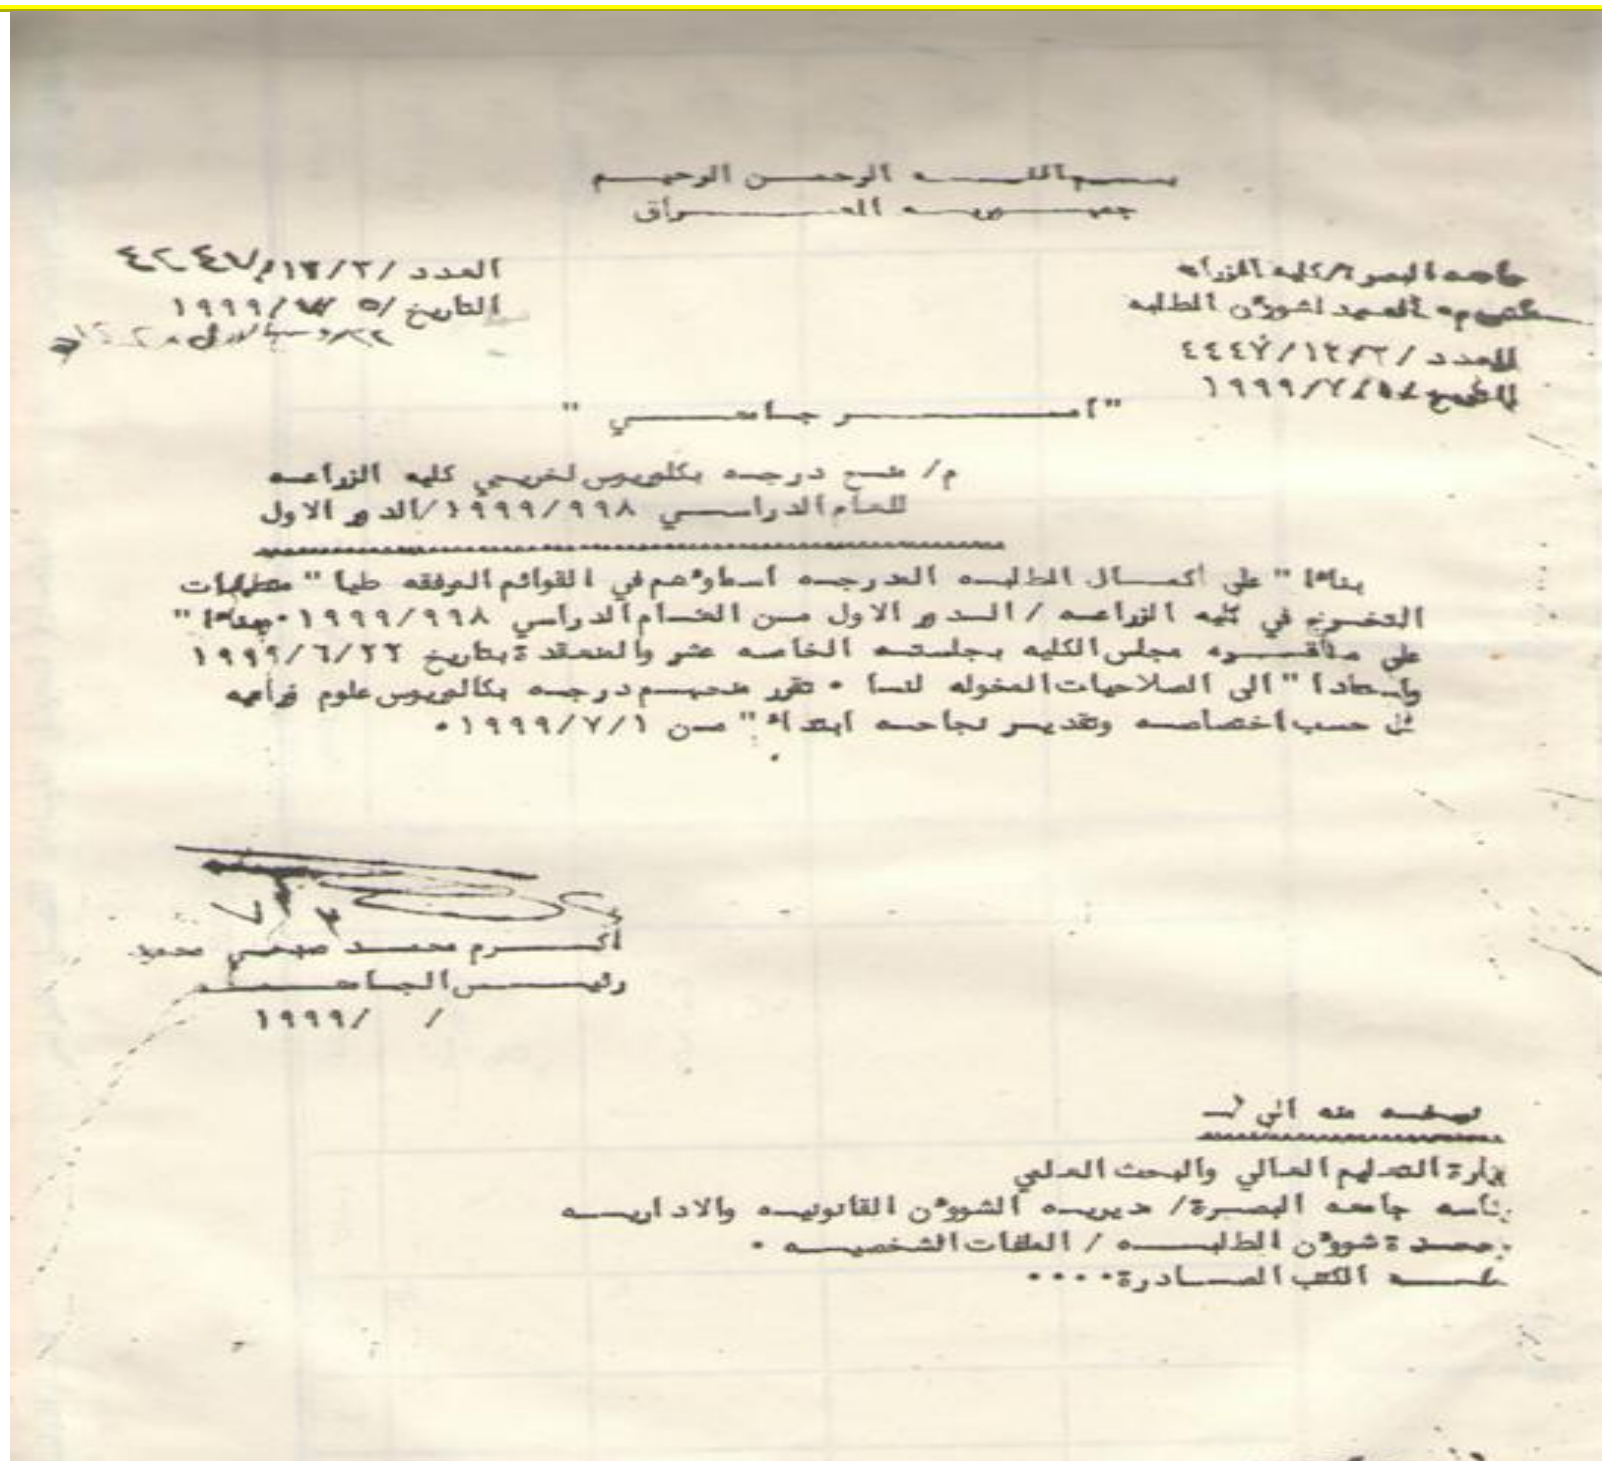 بسم الله الرحمن الرحيم
جمهوريه العراق
جامعه البصرة/كليه الزراعه
العميد لشوؤن الطلبه
العدد /١٢/٣/٤٤٤٧
١٩٩٩/٧/
العدد /١٢/٣/٤٢٤٧
التاريخ /٥ / /١٩٩٩
"امر جامعي"
م/ منح درجه بكلوريوس لخريجي كليه الزراعه
للعام الدراسي ١٩٩٩/٩٩٨/الدور الاول
بناءا" على اكمال الطلبه المدرجه اسماوءهم في القوائم المرفقه طيا" متطلبات
التخرج في كليه الزراعه / الدور الاول من العام الدراسي ١٩٩٩/٩٩٨ . وبناءا"
على مااقره مجلس الكليه بجلسته الخامسه عشر والمنعقدة بتاريخ ١٩٩٩/٦/٢٢
واستنادا" الى الصلاحيات المخوله لنا . تقرر منحهم درجه بكالوريوس علوم زراعيه
كل حسب اختصاصه وتقدير نجاحه ابتداء" من ١٩٩٩/٧/١ .
اكرم محمد صبحي محمود
رئيس الجامعه
/ /١٩٩٩
نسخه منه الى /
وزارة التعليم العالي والبحث العلمي
رئاسه جامعه البصرة/ مديريه الشوؤن القانونيه والاداريه
شوؤن الطلبه / الملفات الشخصيه .
الكتب الصادرة....